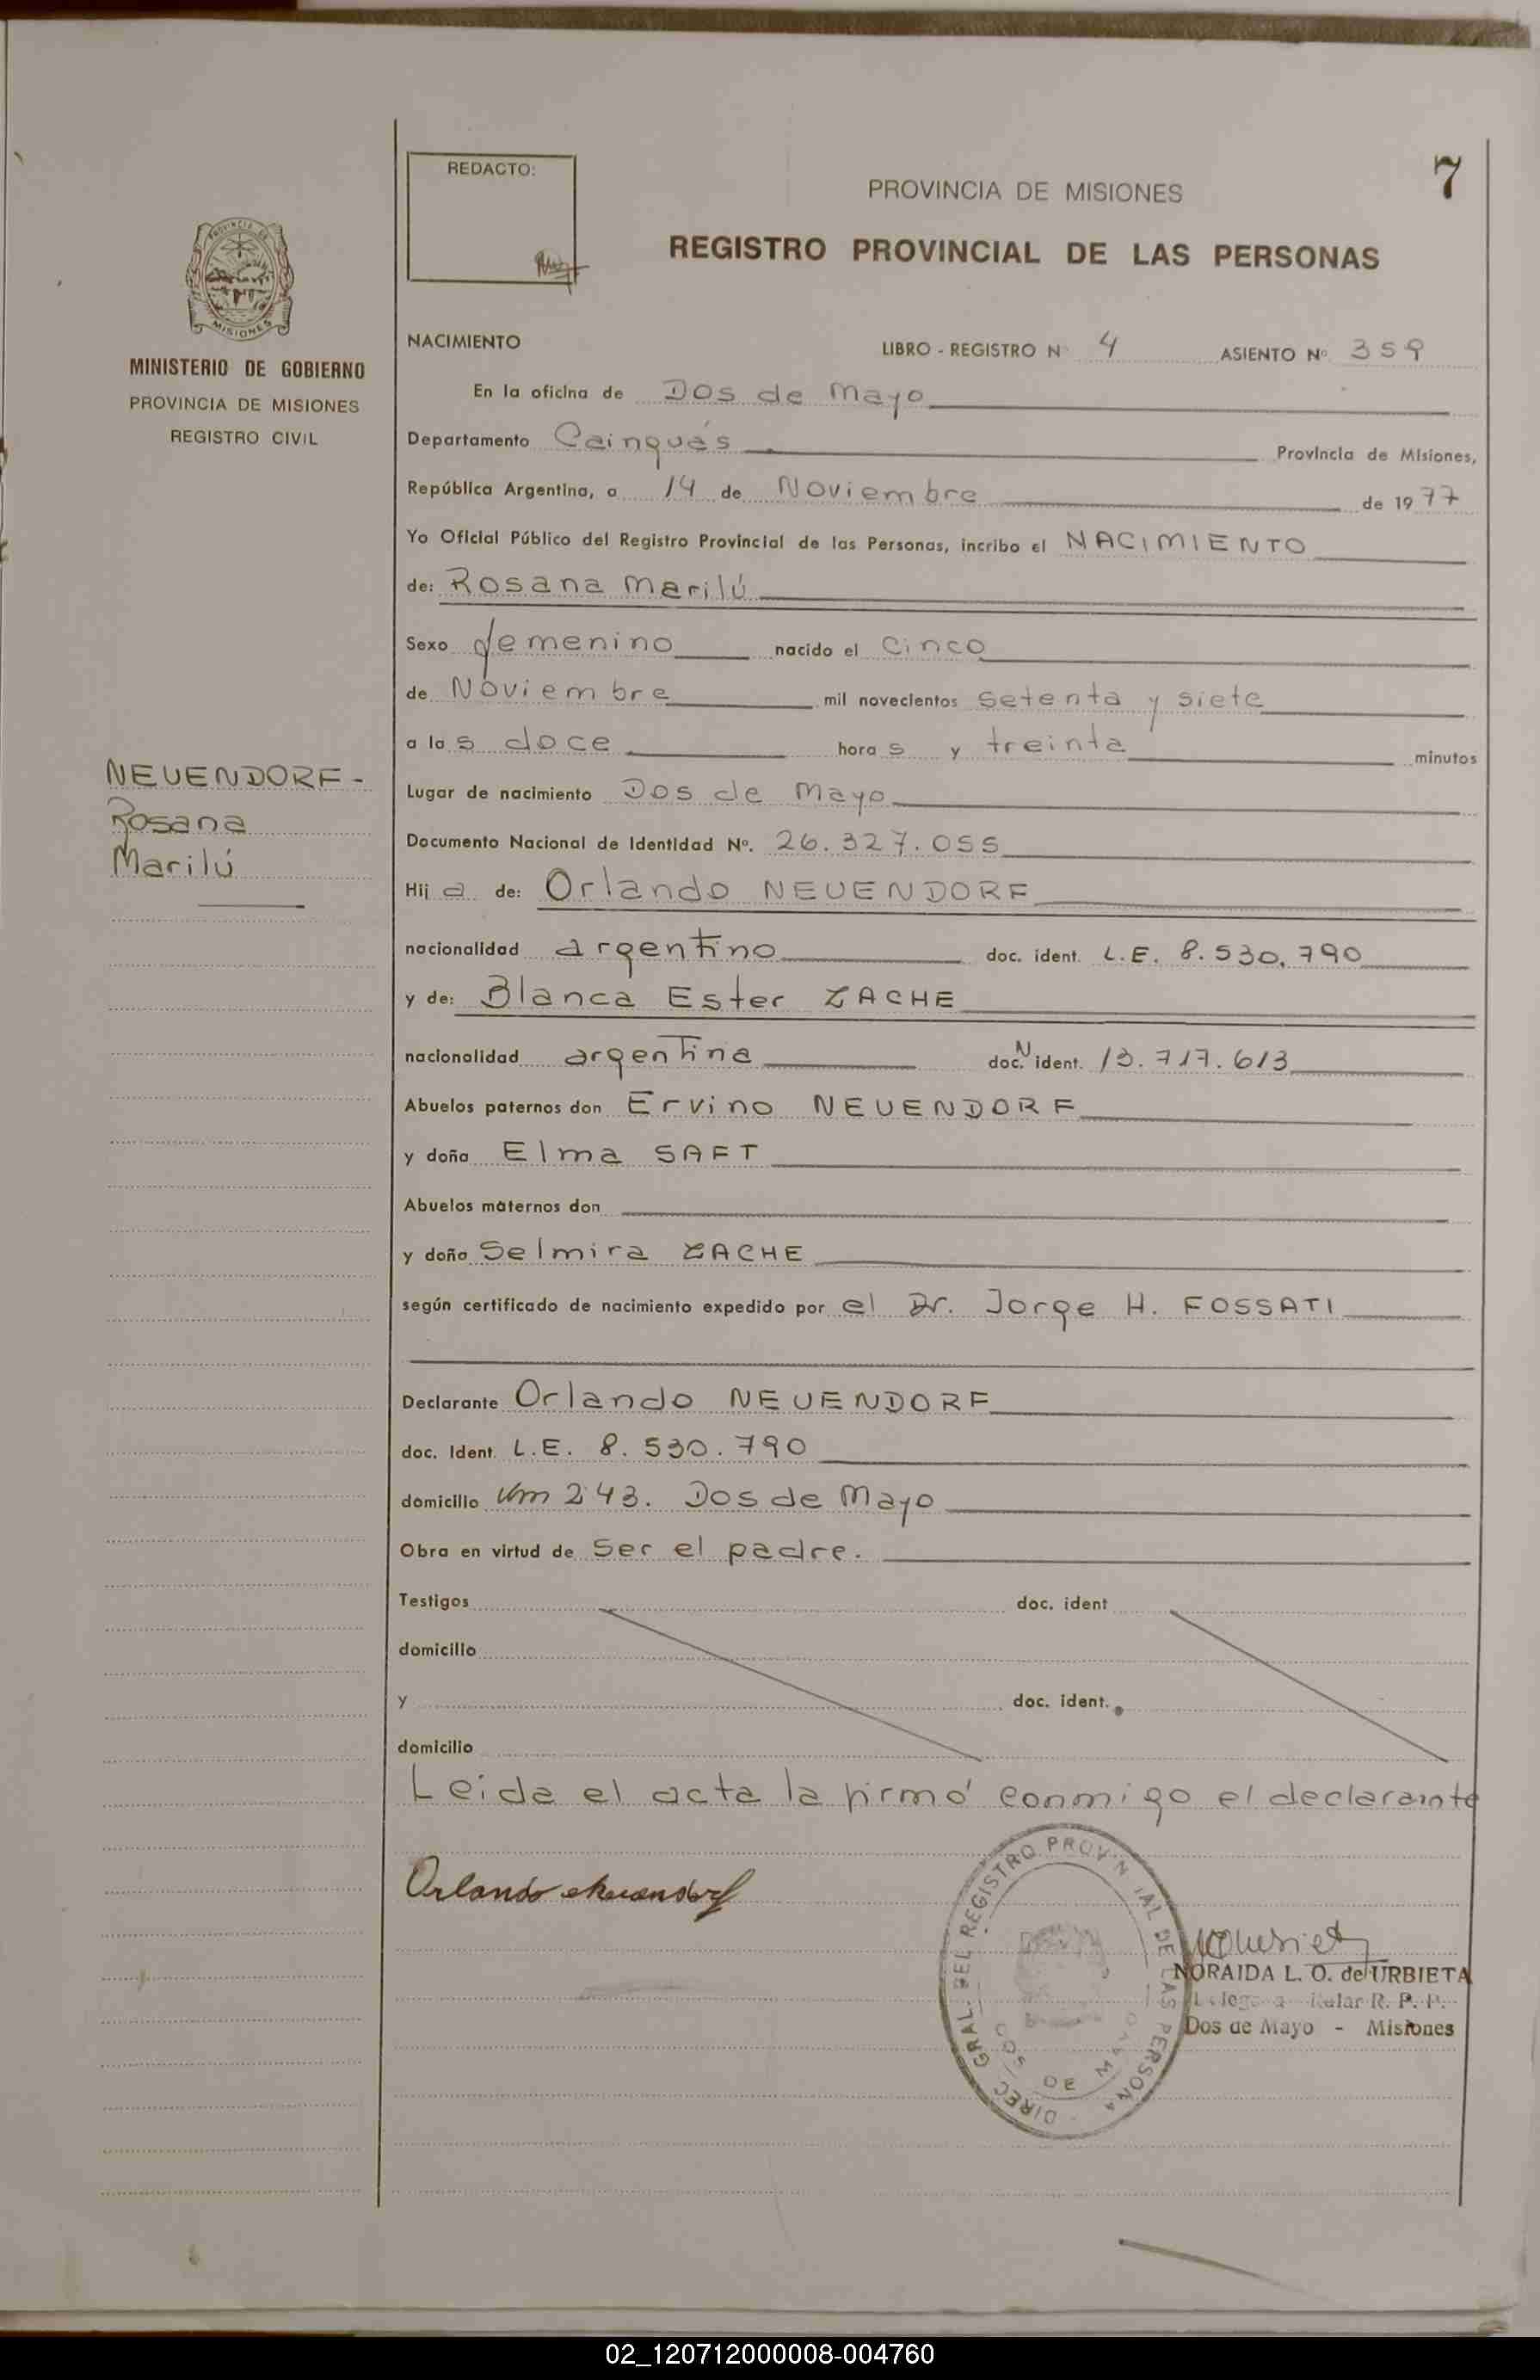 7
REDACTO:
PROVINCIA DE MISIONES
REGISTRO PROVINCIAL DE LAS PERSONAS
PROVINCIA DE
MISIONES
MINISTERIO DE GOBIERNO
PROVINCIA DE MISIONES
REGISTRO CIVIL
NEUENDORF -
Rosana
Marilú
NACIMIENTO LIBRO - REGISTRO Nº 4 ASIENTO Nº 359
En la oficina de Dos de Mayo
Departamento Cainguás Provincia de Misiones,
República Argentina, a 14 de Noviembre de 1977
Yo Oficial Público del Registro Provincial de las Personas, incribo el NACIMIENTO
de: Rosana Marilú
Sexo femenino nacido el cinco
de Noviembre mil novecientos setenta y siete
a las doce horas y treinta minutos
Lugar de nacimiento Dos de Mayo
Documento Nacional de Identidad Nº. 26.327.055
Hija de: Orlando NEUENDORF
nacionalidad argentino doc. ident. L.E. 8.530.790
y de: Blanca Ester ZACHE
nacionalidad argentina doc. N ident. 13.717.613
Abuelos paternos don Ervino NEUENDORF
y doña Elma SAFT
Abuelos maternos don
y doña Selmira ZACHE
según certificado de nacimiento expedido por el Dr. Jorge H. FOSSATI
Declarante Orlando NEUENDORF
doc. Ident. L.E. 8.530.790
domicilio Km 243. Dos de Mayo
Obra en virtud de Ser el padre.
Testigos doc. ident
domicilio
y doc. ident.
domicilio
Leida el acta la firmó conmigo el declarante
Orlando Neuendorf
DIREC GRAL. DEL REGISTRO PROVINCIAL DE LAS PERSONA
DOS DE MAYO
NORAIDA L. O. de URBIETA
R. P. P.
Dos de Mayo - Misiones
02_120712000008-004760